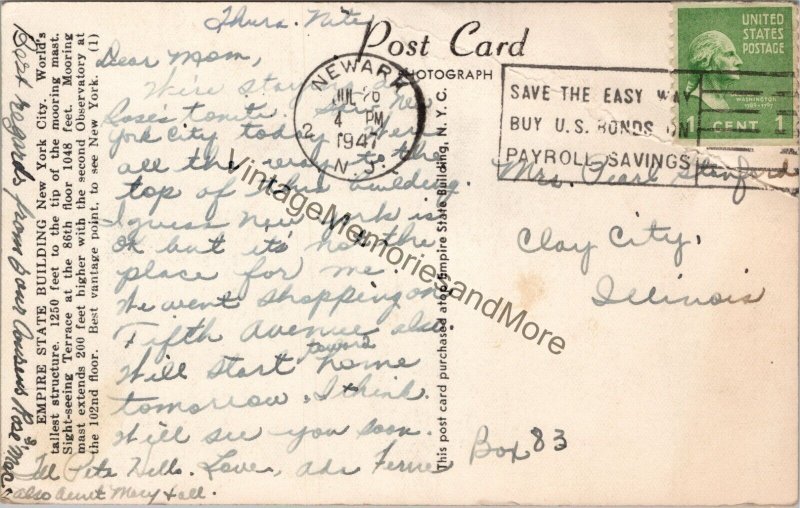 Thurs. Nite
Post Card
PHOTOGRAPH
UNITED
STATES
POSTAGE
WASHINGTON
1 CENT 1
NEWARK
JUL 26
4 PM
1947
2
N.J.
SAVE THE EASY WAY
BUY U.S. BONDS ON
PAYROLL SAVINGS
Dear Mom,
We're staying at
Rose's tonite. Saw New
York City today. Were
all the way to the
top of this building.
I guess New York is
OK but it's not the
place for me.
We went shopping on
Fifth Avenue also.
Will start toward home
tomorrow, I think.
Will see you soon.
Tell Pete Hello. Love, Ada Fern
also Aunt Mary & all.
Mrs. Pearl Stanford
Clay City,
Illinois
Box 83
Best regards, from your Cousins Rose &
EMPIRE STATE BUILDING New York City. World's
tallest structure. 1250 feet to the tip of the mooring mast.
Sight-seeing Terrace at the 86th floor 1048 feet. Mooring
mast extends 200 feet higher with the second Observatory at
the 102nd floor. Best vantage point, to see New York. (1)
This post card purchased atop Empire State Building, N.Y.C.
VintageMemoriesandMore